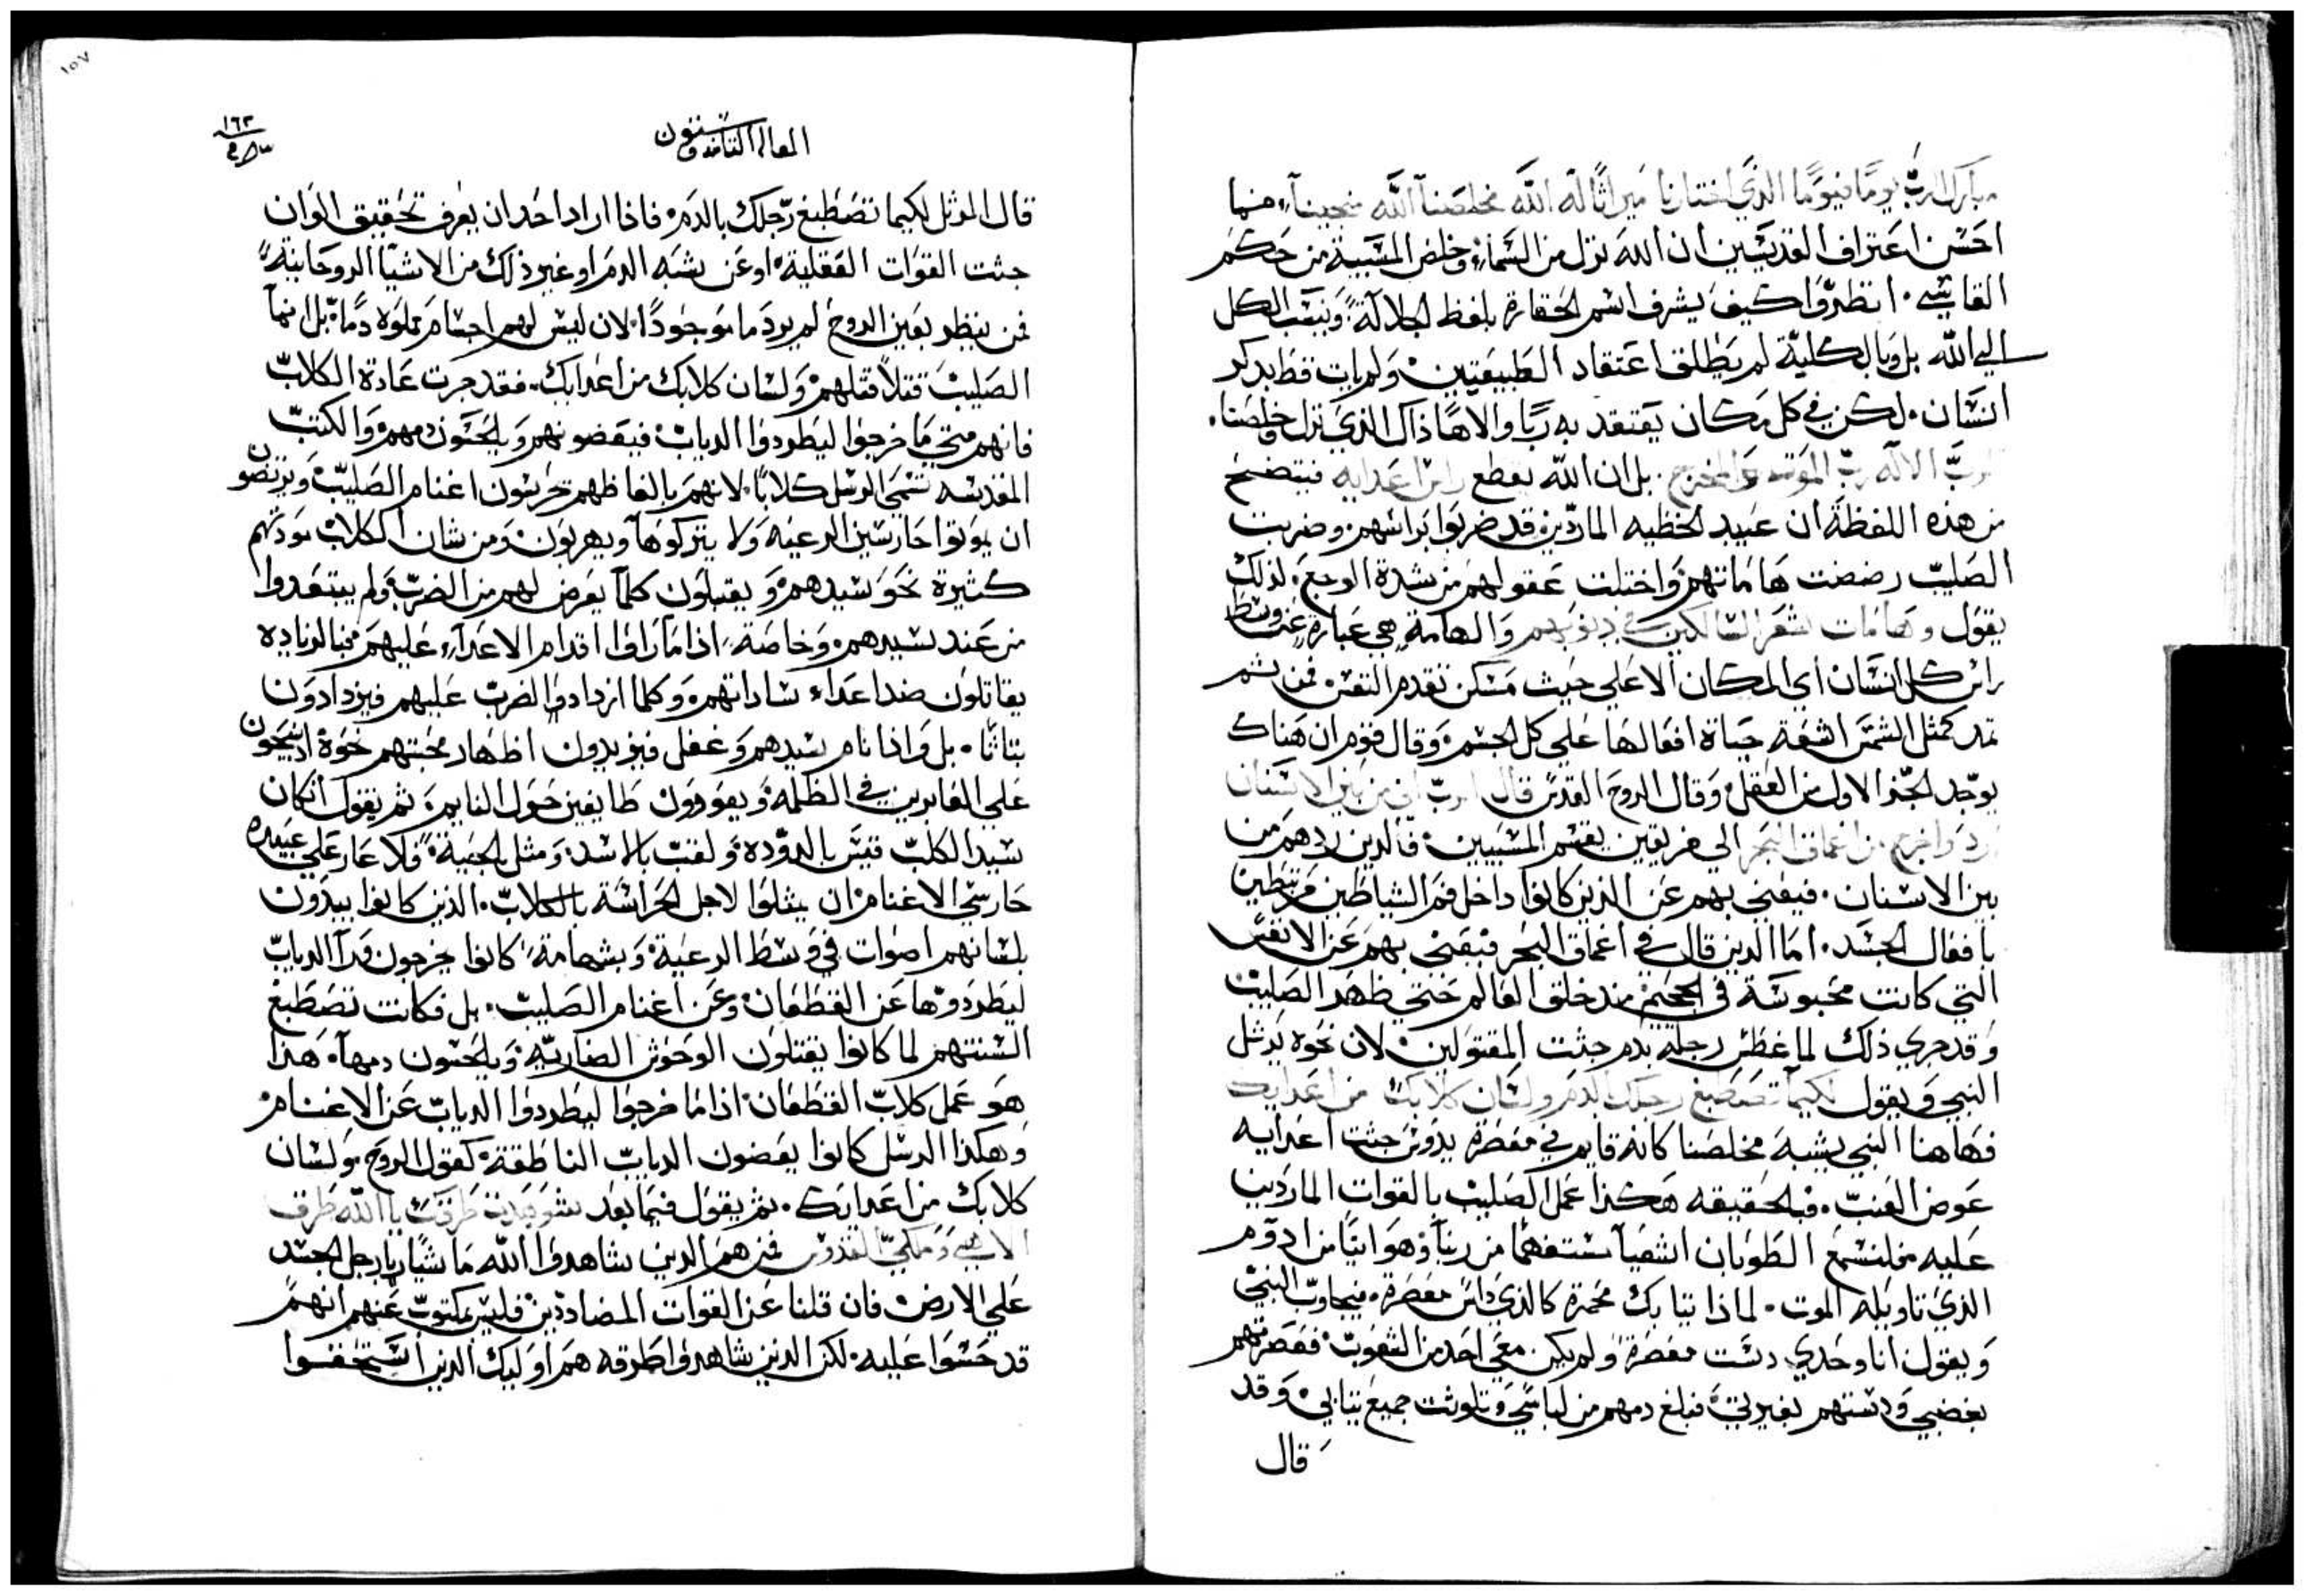 مبارك الرب يومًا فيومًا الذي اختارنا ميراثًا له الله مخلصنا الله منجينا، فنما
احسن اعتراف القديسين ان الله نزل من السماء وخلص المسبية من حكم
القاسي. انظروا كيف يشرف اسم الحقارة بلفظ الجلالة، وينسب الكل
الي الله بل وبالكلية لم يطلق اعتقاد الطبيعتين ولم يات قط بذكر
انسان. لكن في كل مكان يعتقد به ربا والاهًا ذاك الذي نزل وخلصنا.
الرب الاله رب الموت والمخرج. بل ان الله يقطع راس اعدايه فيتضح
من هذه اللفظة ان عبيد الخطيه الماردين قد ضربوا براسهم وضربت
الصليب رضضت هاماتهم واختلت عقولهم من شدة الوجع، لذلك
يقول وهامات شعر السالكين في ذنوبهم والهامة هي عبارة عن وسط
راس كل انسان اي المكان الاعلي حيث مسكن تقدم النفس فمن ثم
تمد كمثل الشمس اشعة حياة افعالها علي كل الجسم، وقال قوم ان هناك
يوجد الجز الاول من العقل وقال الروح القدس قال الرب اني من بين الاسنان
ارد واخرج من اعماق البحر الي فريقين يقسم المسبيين، فالذين ردهم من
بين الاسنان. فيعني بهم عن الذين كانوا داخل فم الشياطين مرتبطين
بافعال الجسد. اما الذين قال في اعماق البحر فيعني بهم عن الانفس
التي كانت محبوسة في الجحيم منذ خلق العالم حتي ظهر الصليب
وقد جري ذلك لما غطس رجله بدم جثت المقتولين لان نحوه يرتل
النبي ويقول لكيما تصطبغ رجلك بالدم ولسان كلابك من اعدايك
فهاهنا النبي يشبه مخلصنا كانه قايم في معصرة يدوس جثت اعدايه
عوض العنب. فبالحقيقه هكذا عمل الصليب بالقوات الماردين
عليه فلنسمع الطوبان اشعيا مستفهمًا من ربنا وهو اتيًا من ادوم
الذي تاويله الموت. لماذا ثيابك محمرة كالذي داس معصرة. فيجاوب النبي
ويقول انا وحدي دست معصرة ولم يكن معي احد من الشعوب فعصرتهم
بغضبي ودستهم بغيرتي فبلغ دمهم من لباسي وتلوثت جميع ثيابي، وقد
قال
١٥٧
المقالة الثامنة وستون
١٦٣
قال المرتل لكيما تصطبغ رجلك بالدم. فاذا اراد احد ان يعرف تحقيق الوان
جثت القوات العقلية، او عن شبه الدم او غير ذلك من الاشيا الروحانية
فمن ينظر بعين الروح لم ير دما موجودًا، لان ليس لهم اجسام مملوه دمًا، بل انما
الصليب قتلا قتلهم ولسان كلابك من اعدايك. فقد جرت عادة الكلاب
فانهم متي ما خرجوا ليطردوا الدياب فيعضونهم ويلحسون دمهم والكتب
المقدسه تسمي الرسل كلابًا. لانهم بالفاظهم يحرسون اغنام الصليب ويرتضون
ان يموتوا حارسين الرعيه ولا يتركوها ويهربون، ومن شان الكلاب مودتهم
كثيرة نحو سيدهم ويقبلون كلما يعرض لهم من الضرب ولم يبتعدوا
من عند سيدهم، وخاصة، اذا ما راوا اقدام الاعداء عليهم فبالزياده
يقاتلون ضد اعداء ساداتهم، وكلما ازدادوا الضرب عليهم فيزدادون
بتاتًا. بل واذا نام سيدهم وغفل فيزيدون اظهار محبتهم نحوه اذ ينبحون
علي العابرين في الظلمه ويعودون طايفين حول النايم، ثم يقول ان كان
سيد الكلب قيس بالدوده ولقب بالاسد، ومثل بالحية، فلا عار علي عبيده
حارسي الاغنام ان يمثلوا لاجل الحراسة بالكلاب. الذين كانوا يبدون
بلسانهم اصوات في وسط الرعية، وبشهامة، كانوا يخرجون ورآ الدياب
ليطردوها عن القطعان، وعن اغنام الصليب. بل فكانت تصطبغ
السنتهم لما كانوا يقتلون الوحوش الضاريه ويلحسون دمها، هذا
هو عمل كلاب القطعان، اذا ما خرجوا ليطردوا الدياب عن الاغنام
وهكذا الرسل كانوا يعضون الدياب الناطقة، كقول الروح، ولسان
كلابك من اعدايك. ثم يقول فيما بعد شوهدت طرقك يا الله طرق
الاهي وملكي القدوس فمن هم الذين شاهدوا الله ماشيًا بارجل الجسد
علي الارض فان قلنا عن القوات المضاددين فليس مكتوب عنهم انهم
قد حسوا عليه. لكن الذين شاهدوا طرقه هم اوليك الذين استحقوا